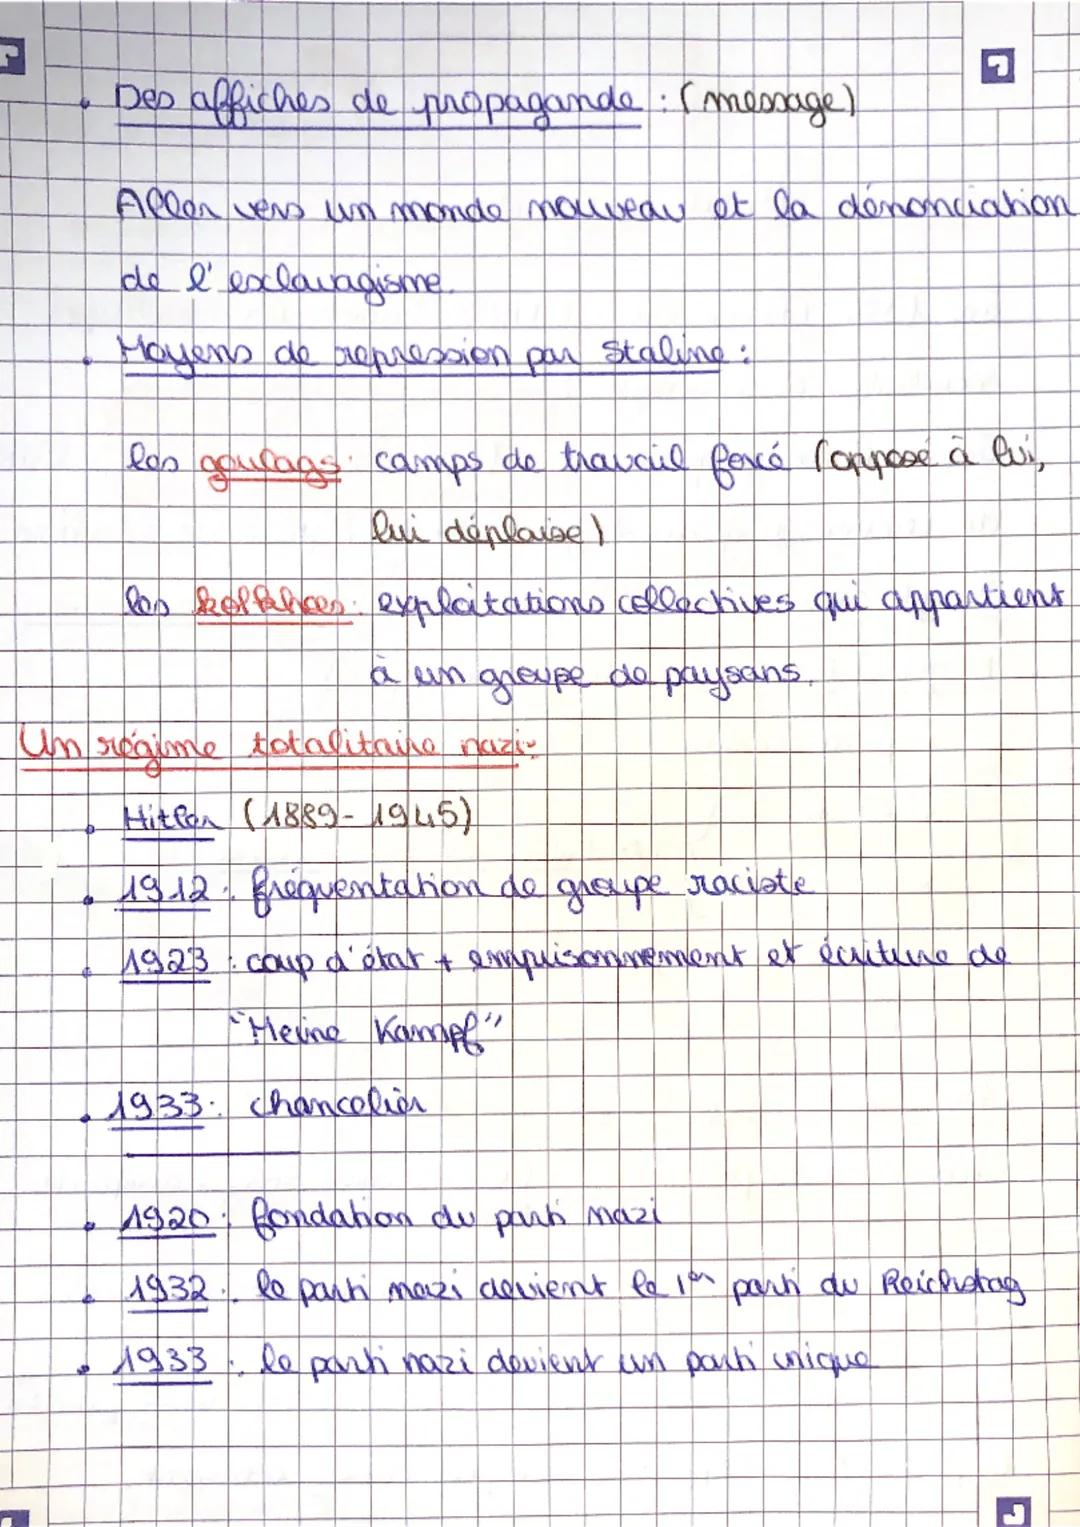 • Des affiches de propagande : (message)
Aller vers un monde nouveau et la dénonciation
de l'esclavagisme.
• Moyens de repression par Staline :
les goulags : camps de travail forcé (opposé à lui,
lui déplaise)
les kolkhozes : exploitations collectives qui appartient
à un groupe de paysans.
Un régime totalitaire nazi :
• Hitler (1889-1945)
• 1912 : fréquentation de groupe raciste
• 1923 : coup d'état + emprisonnement et écriture de
"Meine Kampf"
• 1933 : chancelier
• 1920 : fondation du parti nazi
• 1932 : le parti nazi devient le 1er parti du Reichstag
• 1933 : le parti nazi devient un parti unique